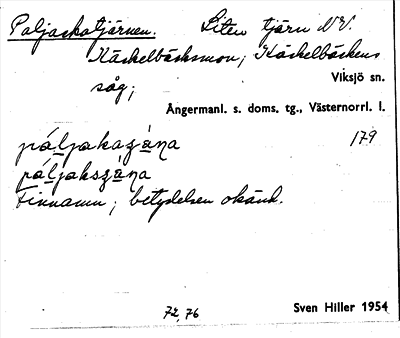 Paljackatjärnen. Liten tjärn NV.
Käskelbäcksmon, Käskelbäckens
Viksjö sn.
såg;
Ångermanl. s. doms. tg., Västernorrl. l.
179
Finnamn; betydelsen okänd.
72, 76
Sven Hiller 1954